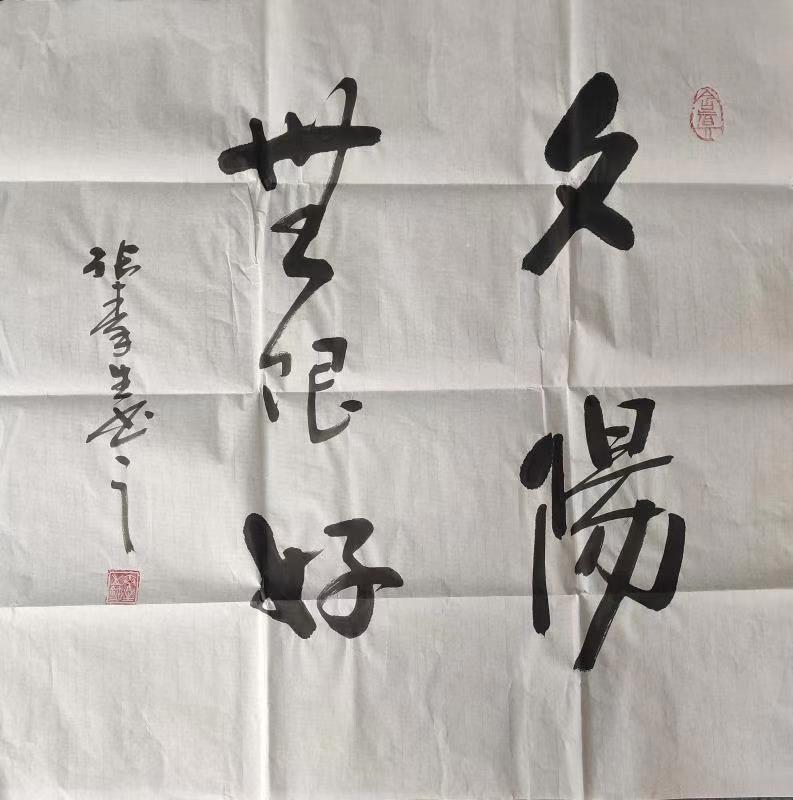 夕陽
無限好
張春生書